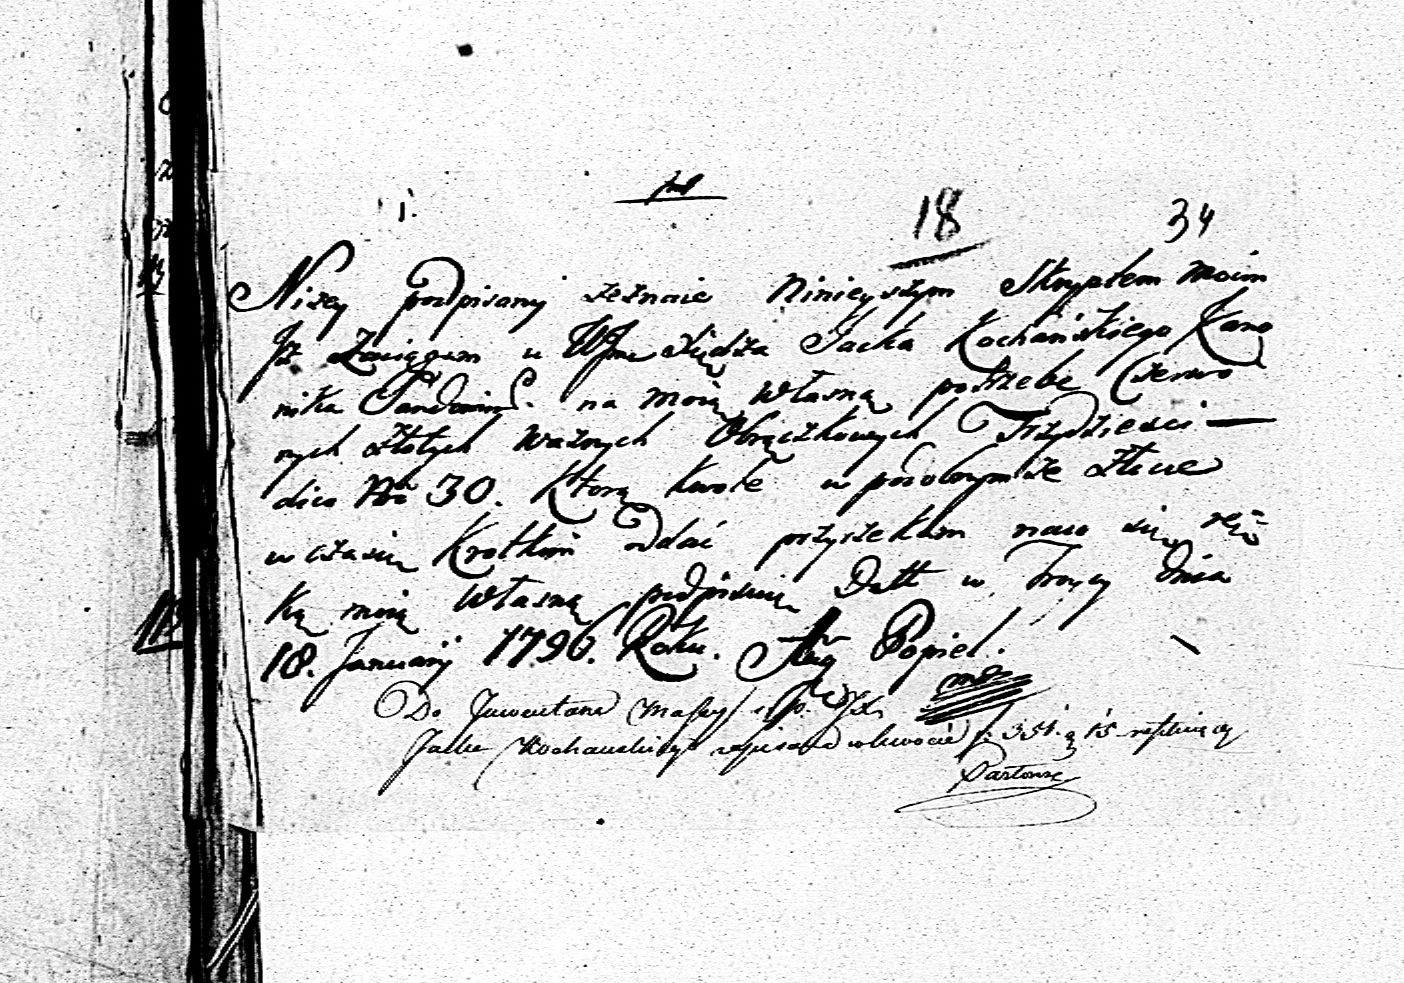 1.
18 34
Niżey podpisany zeznaię Ninieyszym Skryptem Moim
Jż Zaciągam u WJmc Xiędza Jacka Kochańskiego Kano
nika Sandomirs. na moią własną potrzebę Czerwo
nych złotych ważnych Obrączkowych Trzydzieści —
dico Nro 30. Ktorą kwotę w podobnymże złocie
w czasie krotkim oddać przyrzekam na co się rę=
ką moią własną podpisuię Datt w dnia
18. January 1796. Roku. Aug Popiel.
mp
Do Jnwentarza Massy
Jacka Kochanskiego 15